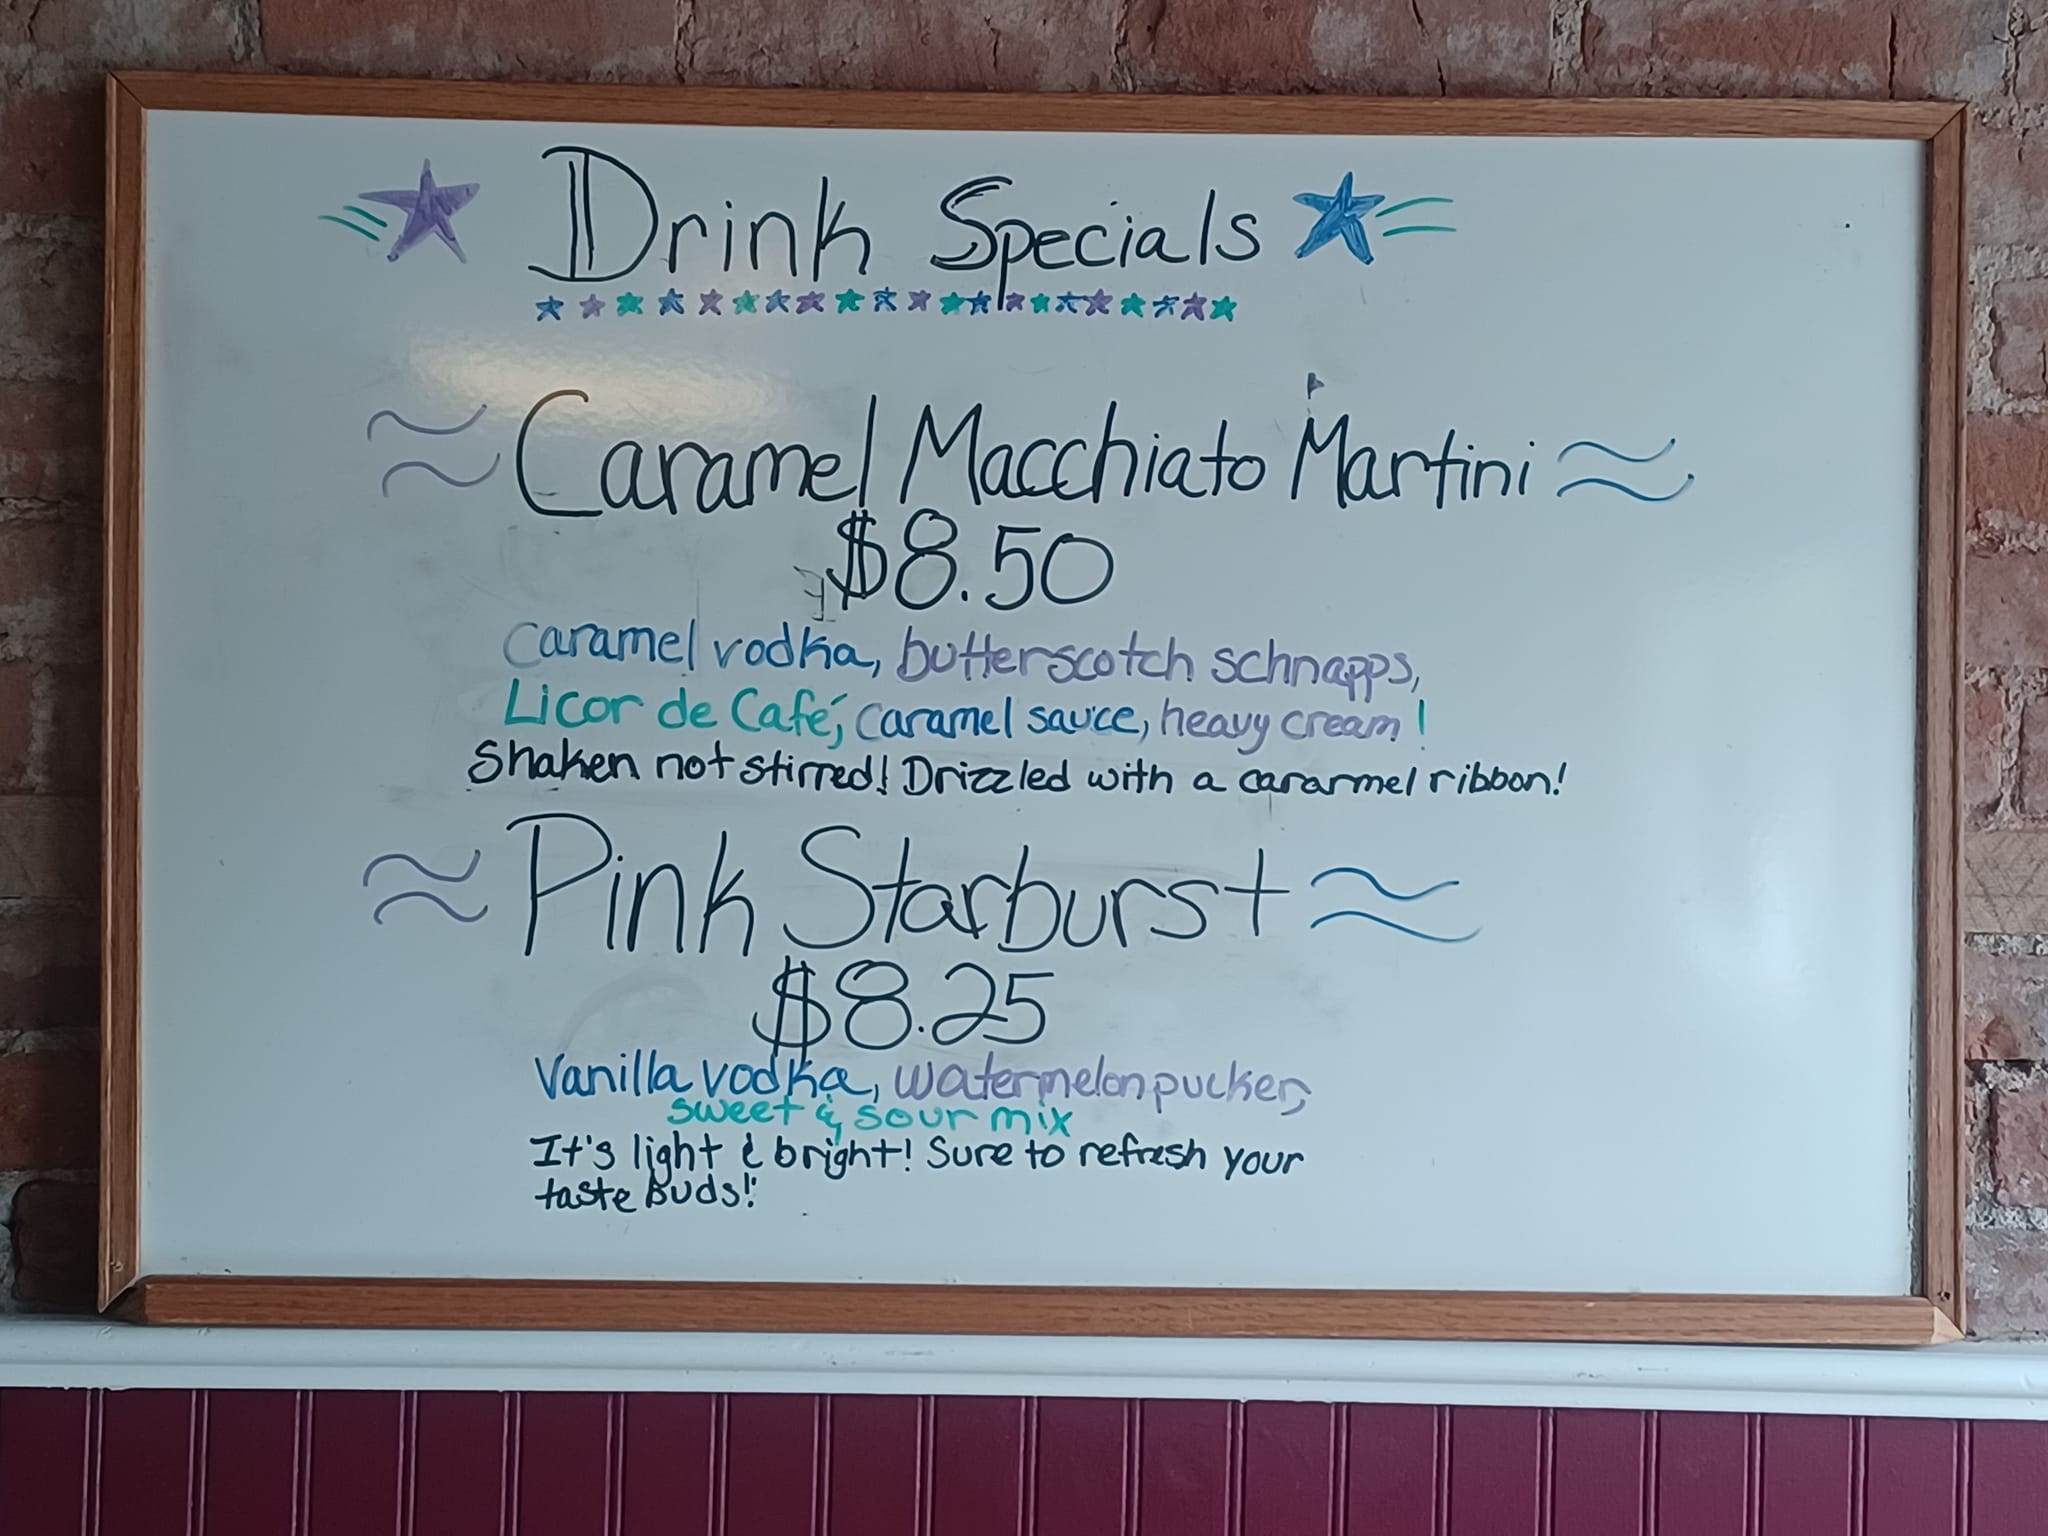 Drink Specials
Caramel Macchiato Martini
$8.50
Caramel vodka, butterscotch schnapps,
Licor de Café, caramel sauce, heavy cream!
Shaken not stirred! Drizzled with a cararmel ribbon!
Pink Starburst
$8.25
Vanilla vodka, watermelon pucker,
sweet & sour mix
It's light & bright! Sure to refresh your
taste buds!!